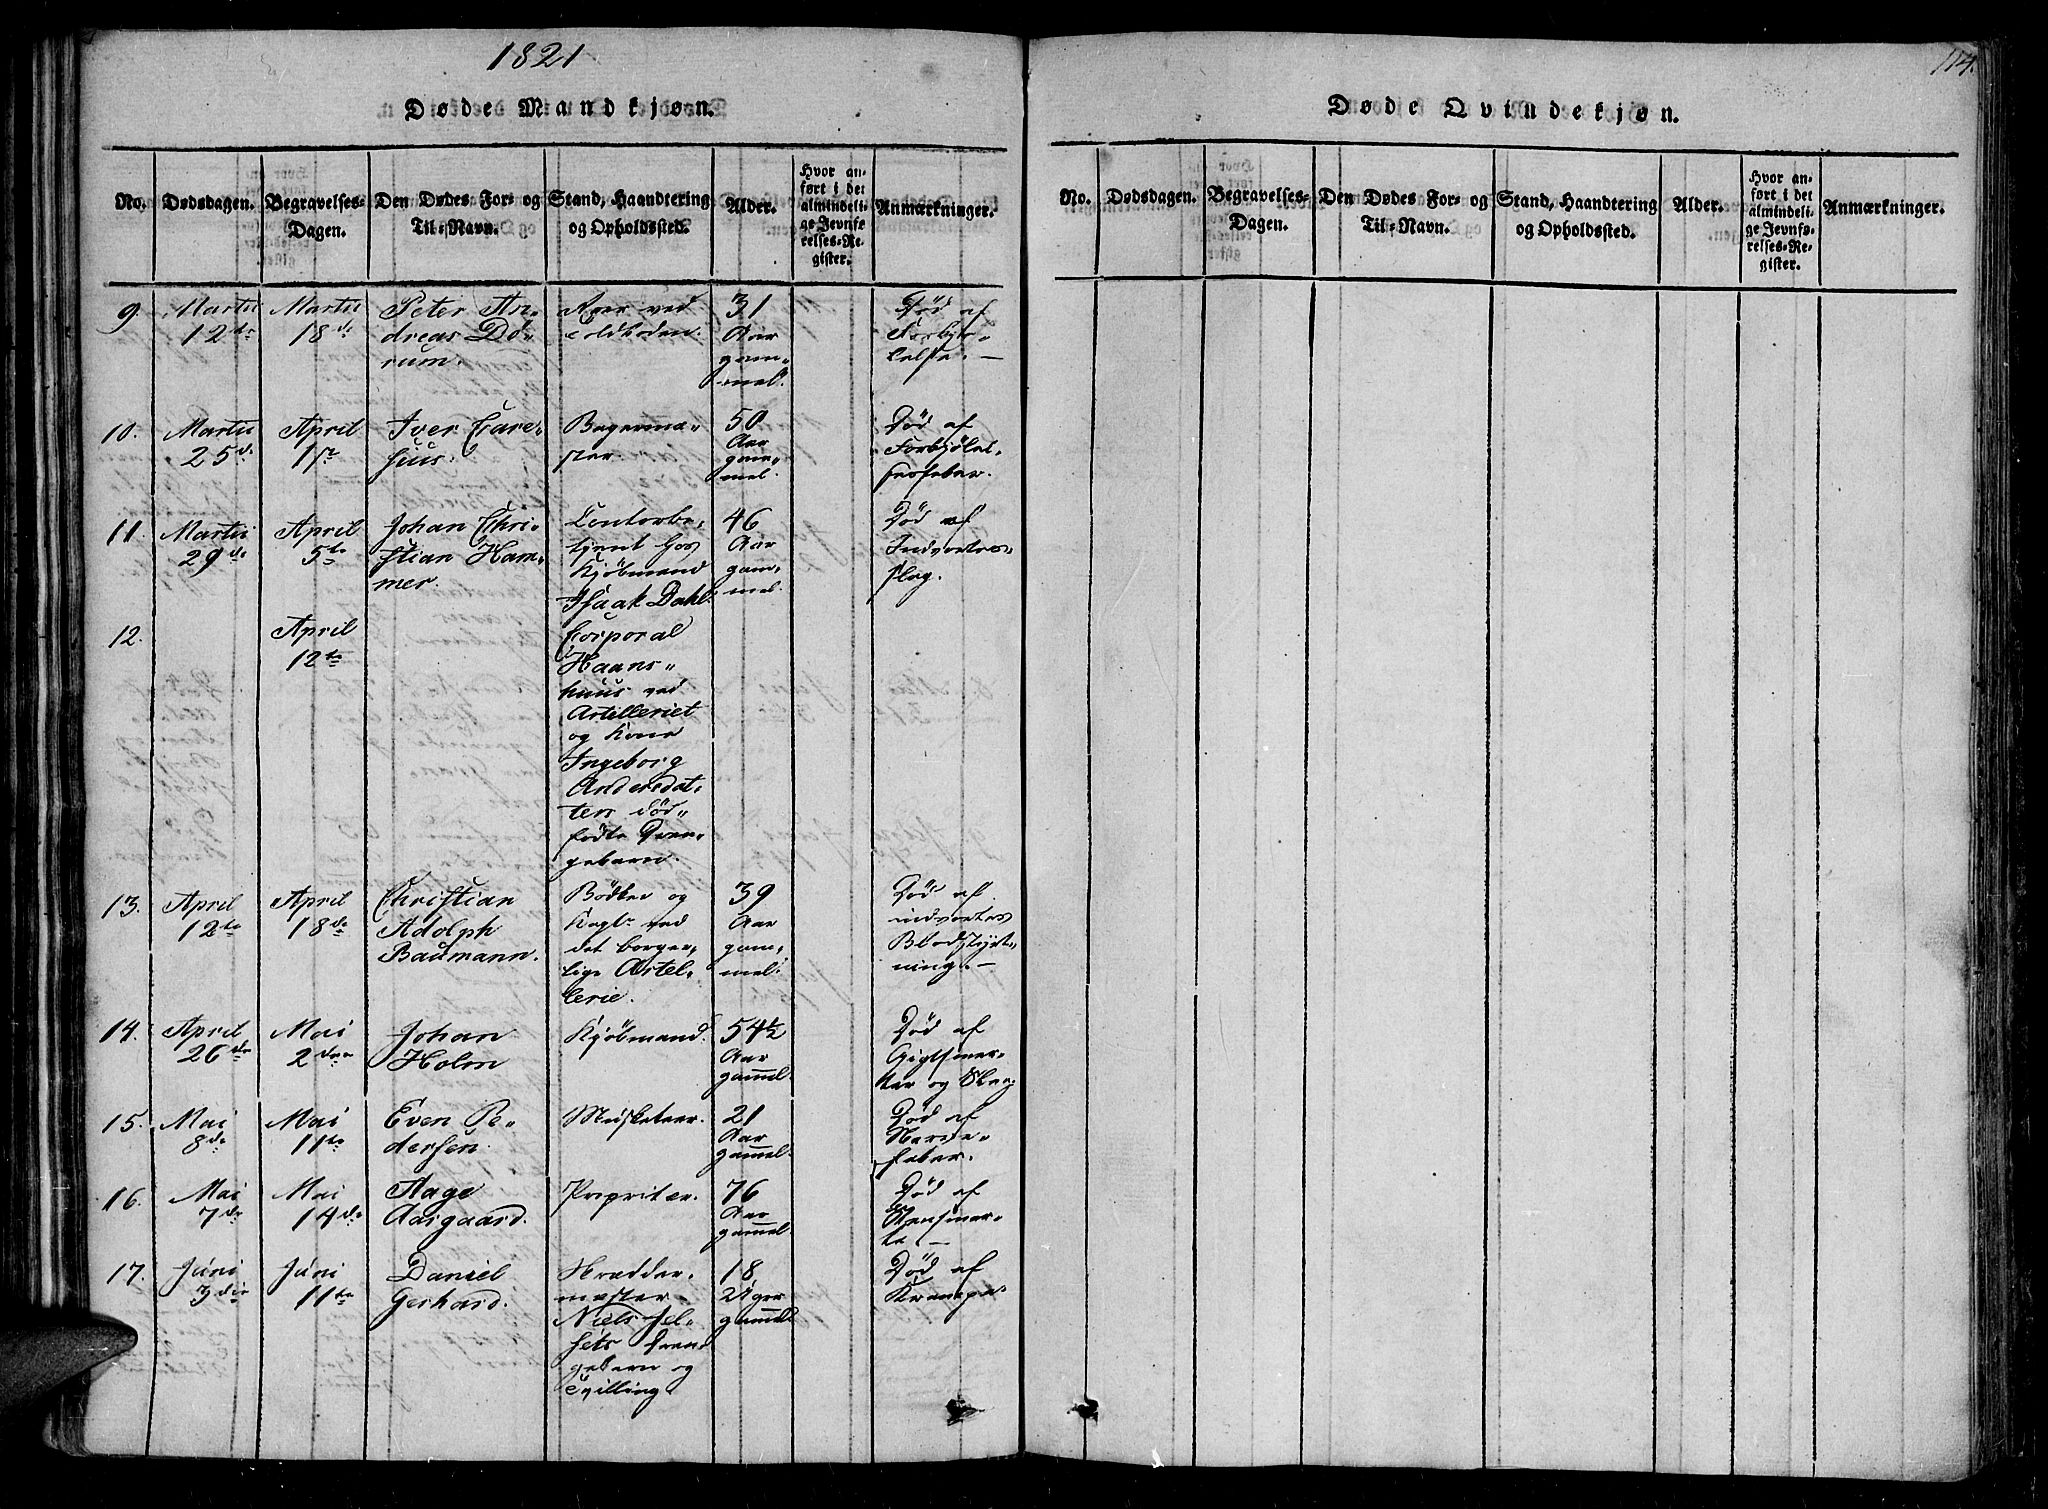 1821
114.
Døde Mandkjøn.
No.
Dødsdagen.
Begravelses-
Dagen.
Den Dødes For- og
Til-Navn.
Stand, Haandtering
og Opholdssted.
Alder.
Hvor an-
ført i det
almindeli-
ge Jevnfø-
relses-Re-
gister.
Anmærkninger.
9.
Martii
12te
Martii
18de
Peter An-
dreas Dö-
rum.
ved
Toldboden.
31
Aar
gam-
mel.
Död af
10.
Martii
25de
April
1ste
Iver Care-
lius.
Bagerme-
ster.
50
Aar
gam-
mel.
Död af
Forkjölel-
sesfeber.
11.
Martii
29de
April
5te
Johan Chri-
stian Ham-
mer.
Contorbe-
tjent hos
Kjöbmand
Isaak Dahl.
46
Aar
gam-
mel.
Död af
Indvortes
slag.
12.
April
12te
Corporal
Haans-
huus ved
Artilleriet
og Kone
Ingeborg
Andersdat-
ters död-
fødte Dren-
gebarn.
13.
April
12te
April
18de
Christian
Adolph
Baumann.
Bödker og
ved
det borger-
lige Artil-
lerie.
39
Aar
gam-
mel.
Död af
indvortes
Blodstyrt-
ning.
14.
April
26de
Mai
2den
Johan
Holm
Kjöbmand.
54½
Aar
gammel.
Död af
Gigtsmer-
ter og Slag.
15.
Mai
8de
Mai
11te
Even Pe-
dersen.
Musketeer.
21
Aar
gammel.
Död af
Nerve-
feber.
16.
Mai
7de
Mai
14de
Aage
Aasgaard.
Propritær.
76
Aar
gammel.
Död af
17.
Juni
3die
Juni
11te
Daniel
Gerhard.
Skrædder-
mester
Niels Jel-
sets Dren-
gebarn og
Tvilling
18
Uger
gammel.
Död af
Krampe.
Døde Qvindekjøn.
No.
Dødsdagen.
Begravelses-
Dagen.
Den Dødes For- og
Til-Navn.
Stand, Haandtering
og Opholdssted.
Alder.
Hvor an-
ført i det
almindeli-
ge Jevnfø-
relses-Re-
gister.
Anmærkninger.